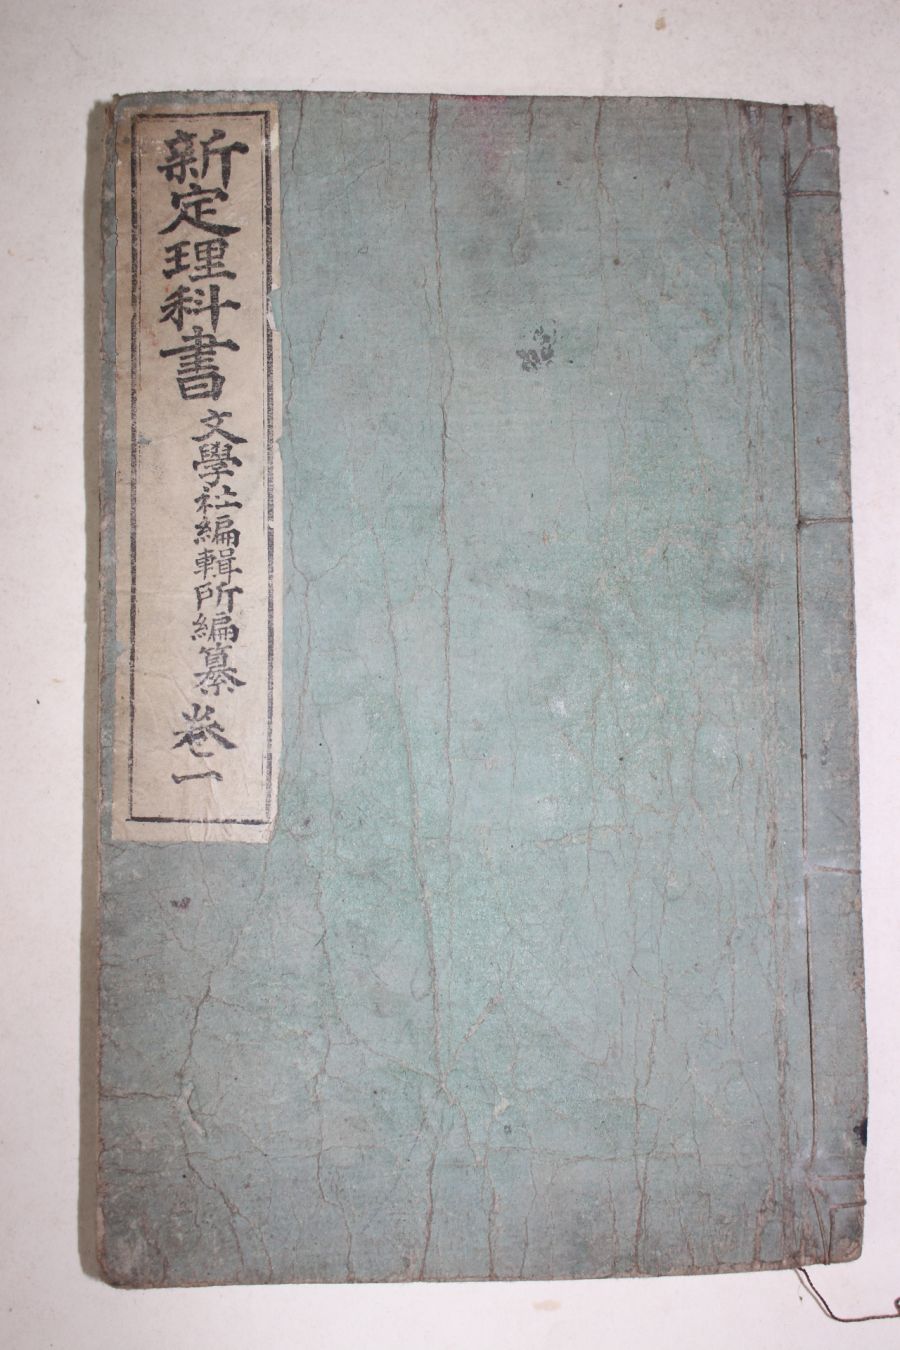 新定理科書 文學社編輯所編纂 卷一